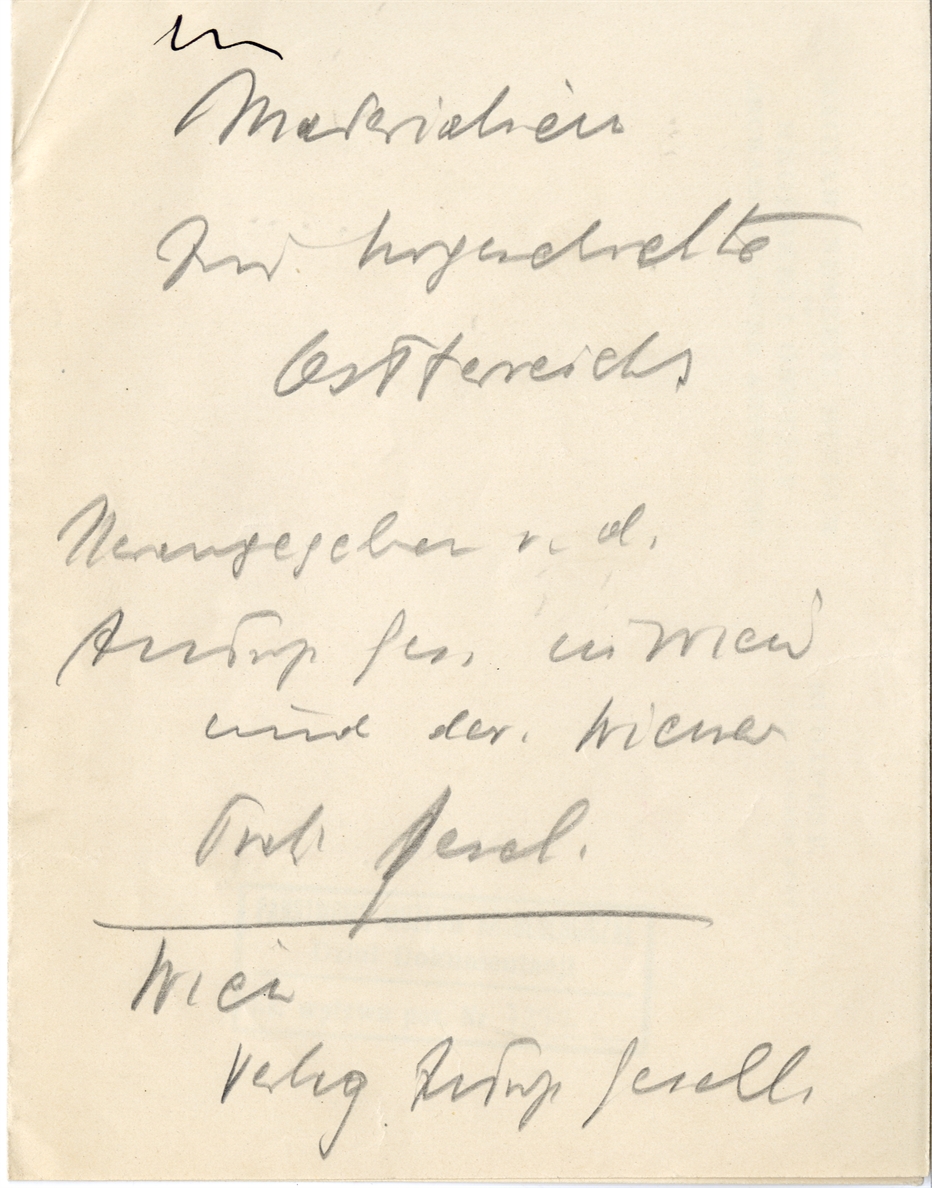 Materialien
zur Urgeschichte
Österreichs
Herausgegeben v. d.
Anthrop Ges. in Wien
und der Wiener
Präh. Gesel.
Wien
Verlag Anthrop Gesells